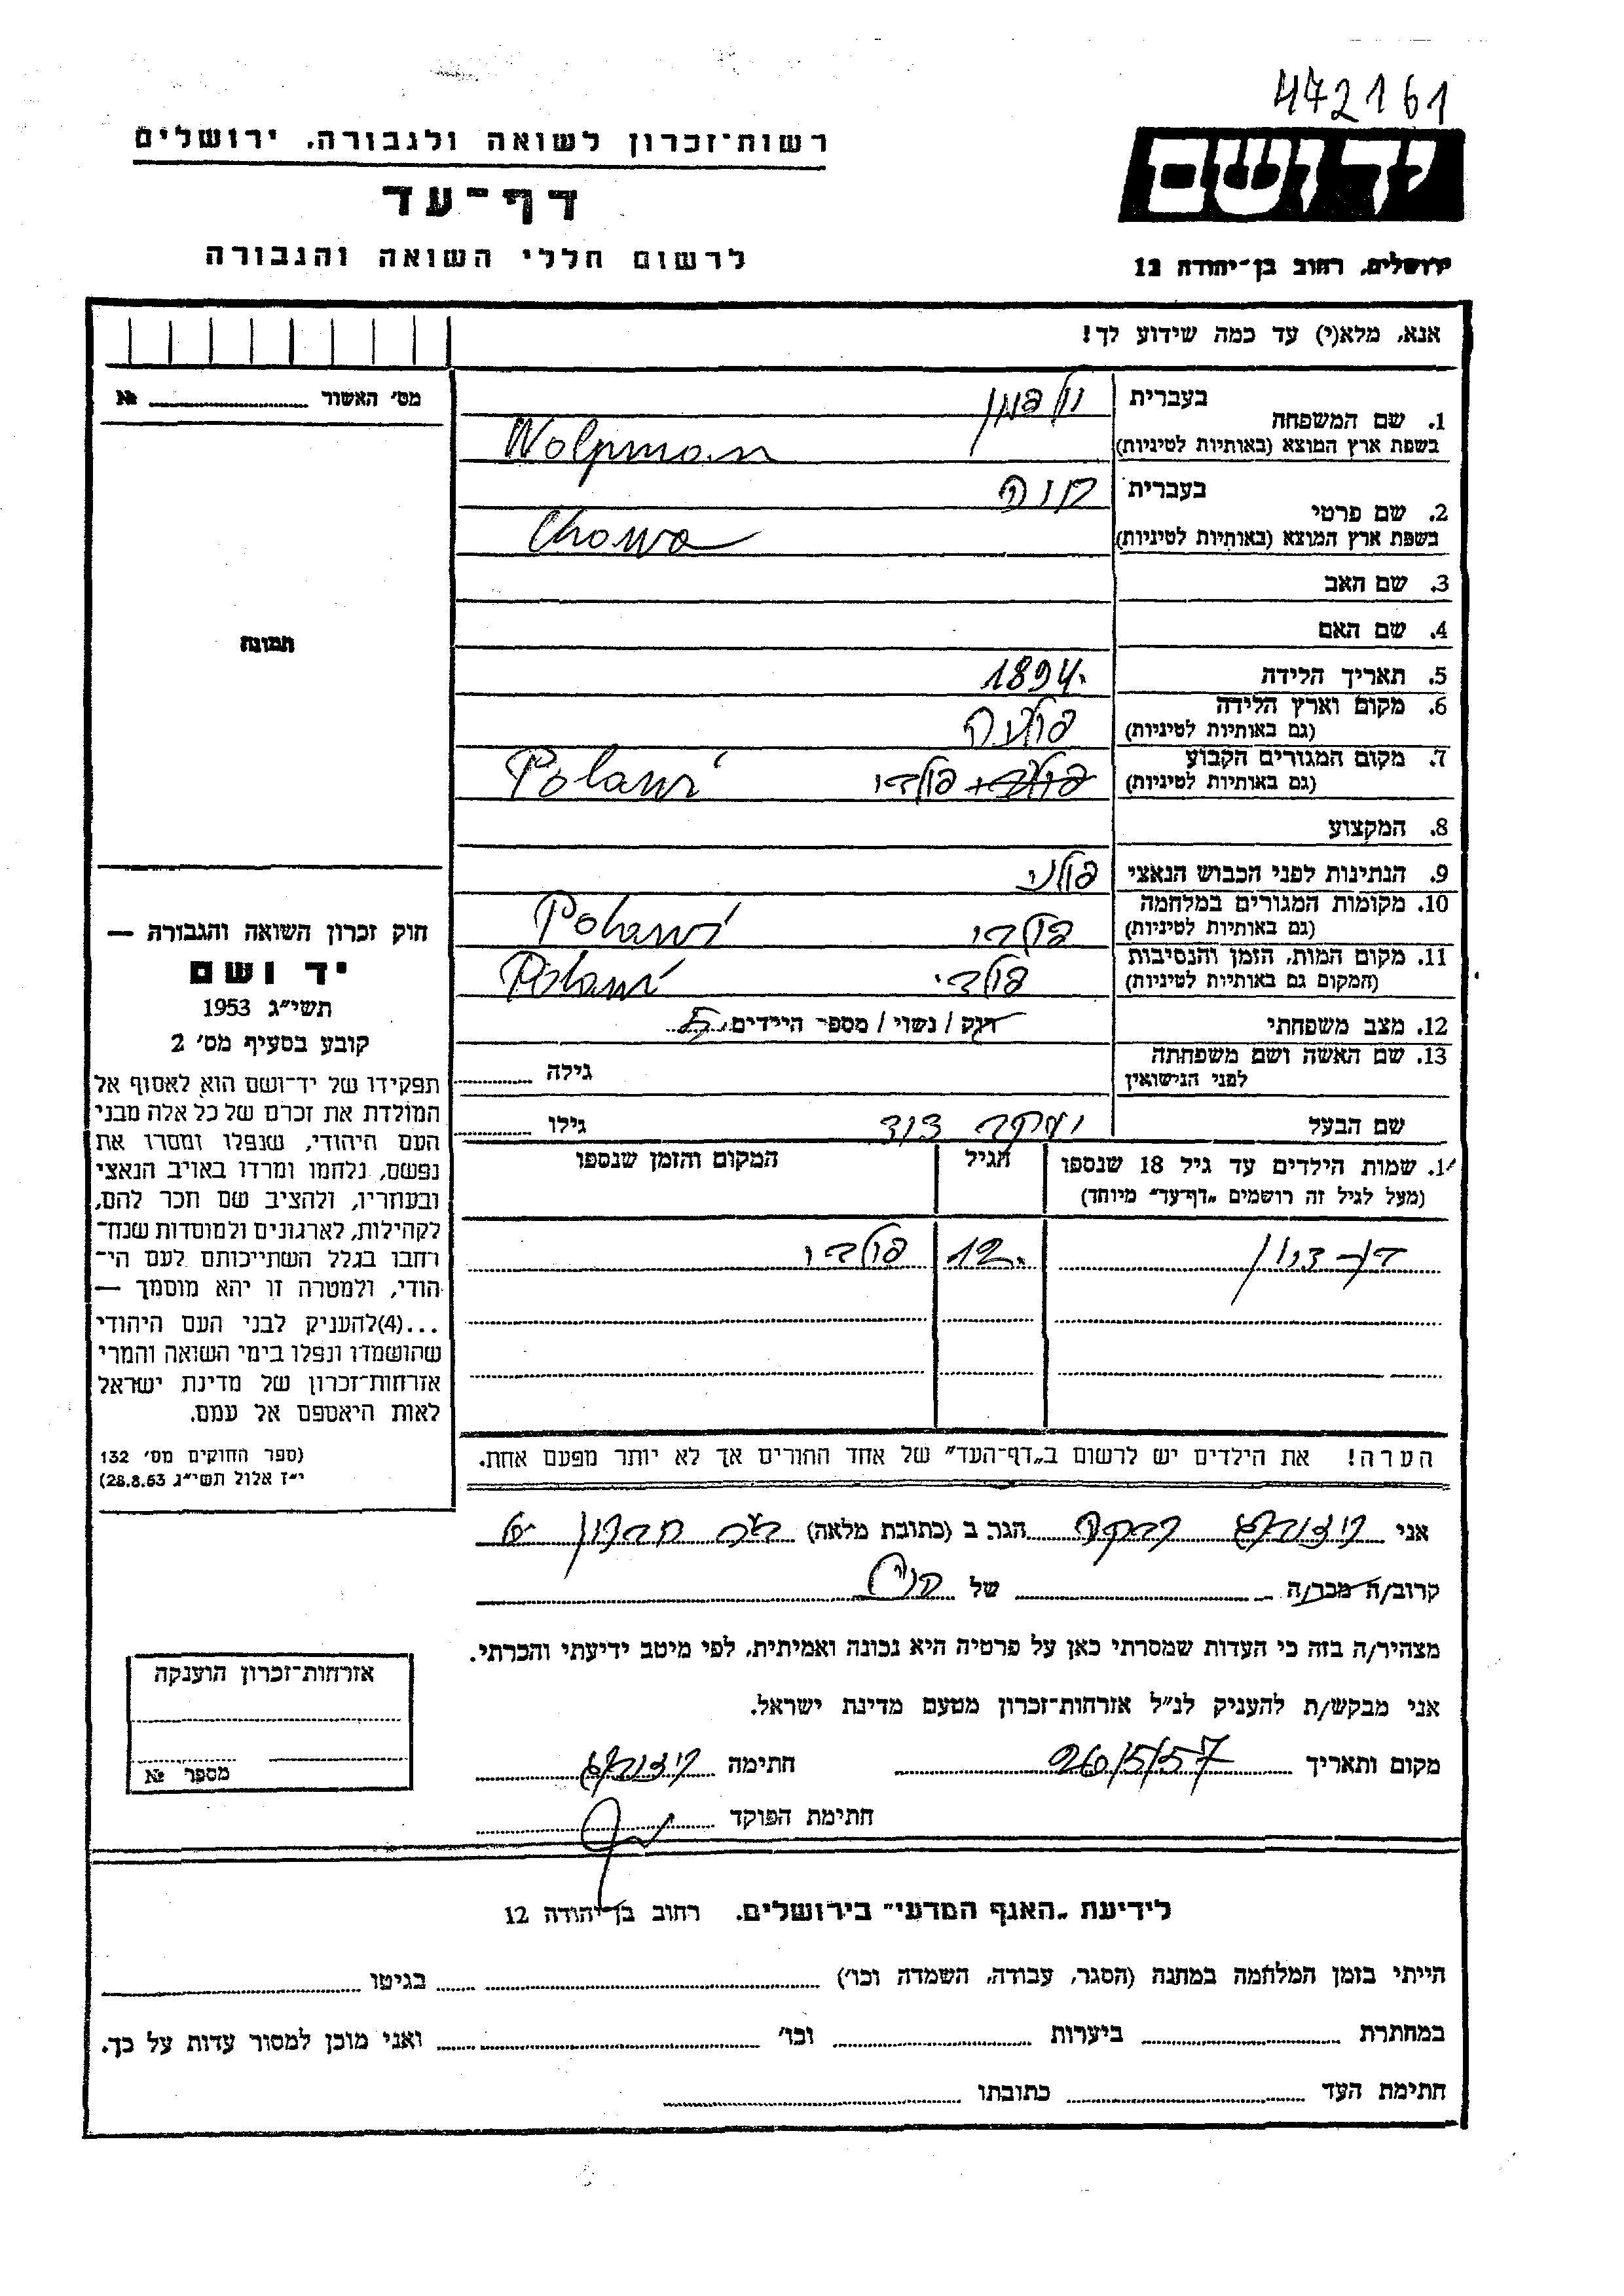 472161
יד ושם
ירושלים, רחוב בן־יהודה 12
רשות־זכרון לשואה ולגבורה, ירושלים
דף־עד
לרשום חללי השואה והגבורה
אנא, מלא(י) עד כמה שידוע לך!
1. שם המשפחה
בעברית
וולפמן
בשפת ארץ המוצא (באותיות לטיניות)
Wolpman
2. שם פרטי
בעברית
חוה
בשפת ארץ המוצא (באותיות לטיניות)
Chowa
3. שם האב
4. שם האם
5. תאריך הלידה
1894
6. מקום וארץ הלידה
(גם באותיות לטיניות)
פולניה
7. מקום המגורים הקבוע
(גם באותיות לטיניות)
8. המקצוע
9. הנתינות לפני הכבוש הנאצי
פולני
10. מקומות המגורים במלחמה
(גם באותיות לטיניות)
11. מקום המות, הזמן והנסיבות
(המקום גם באותיות לטיניות)
12. מצב משפחתי
רוק / נשוי / מספר הילדים 5
13. שם האשה ושם משפחתה
לפני הנישואין
גילה
שם הבעל
יעקב דוד
גילו
14. שמות הילדים עד גיל 18 שנספו
(מעל לגיל זה רושמים „דף־עד" מיוחד)
הגיל
המקום והזמן שנספו
12
הערה! את הילדים יש לרשום ב„דף־העד" של אחד ההורים אך לא יותר מפעם אחת.
אני
רבקה
הגר ב (כתובת מלאה)
קרוב/ה מכר/ה
של
מצהיר/ה בזה כי העדות שמסרתי כאן על פרטיה היא נכונה ואמיתית, לפי מיטב ידיעתי והכרתי.
אני מבקש/ת להעניק לנ"ל אזרחות־זכרון מטעם מדינת ישראל.
מקום ותאריך
26/5/57
חתימה
חתימת הפוקד
מס׳ האשור
№
תמונה
חוק זכרון השואה והגבורה —
יד ושם
תשי"ג 1953
קובע בסעיף מס׳ 2
תפקידו של יד־ושם הוא לאסוף אל
המולדת את זכרם של כל אלה מבני
העם היהודי, שנפלו ומסרו את
נפשם, נלחמו ומרדו באויב הנאצי
ובעוזריו, ולהציב שם וזכר להם,
לקהילות, לארגונים ולמוסדות שנח־
רבו בגלל השתייכותם לעם הי־
הודי, ולמטרה זו יהא מוסמך —
...(4)להעניק לבני העם היהודי
שהושמדו ונפלו בימי השואה והמרי
אזרחות־זכרון של מדינת ישראל
לאות היאספם אל עמם.
(ספר החוקים מס׳ 132
י"ז אלול תשי"ג 28.8.53)
אזרחות־זכרון הוענקה
מספר №
לידיעת „האגף המדעי" בירושלים. רחוב בן־יהודה 12
הייתי בזמן המלחמה במחנה (הסגר, עבודה, השמדה וכו׳)
בגיטו
במחתרת
ביערות
וכו׳
ואני מוכן למסור עדות על כך.
חתימת העד
כתובתו